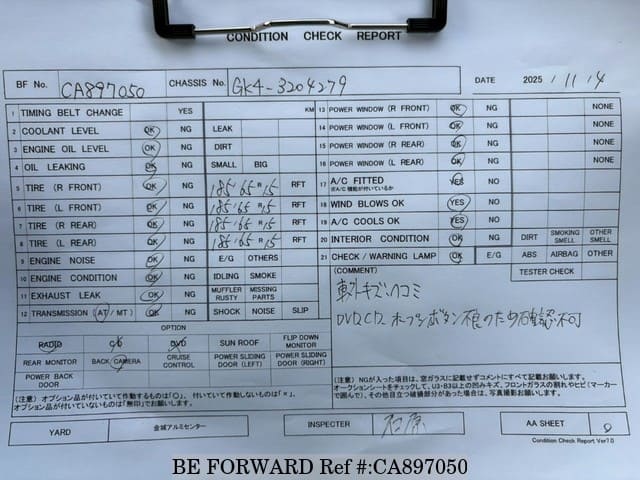 CONDITION CHECK REPORT
BF No. CA897050 CHASSIS No. GK4-3204279 DATE 2025 / 11 / 4
1 TIMING BELT CHANGE YES KM
2 COOLANT LEVEL OK NG LEAK
3 ENGINE OIL LEVEL OK NG DIRT
4 OIL LEAKING OK NG SMALL BIG
5 TIRE (R FRONT) OK NG 185/65 R 15 RFT
6 TIRE (L FRONT) OK NG 185/65 R 15 RFT
7 TIRE (R REAR) OK NG 185/65 R 15 RFT
8 TIRE (L REAR) OK NG 185/65 R 15 RFT
9 ENGINE NOISE OK NG E/G OTHERS
10 ENGINE CONDITION OK NG IDLING SMOKE
11 EXHAUST LEAK OK NG MUFFLER RUSTY MISSING PARTS
12 TRANSMISSION (AT / MT) OK NG SHOCK NOISE SLIP
13 POWER WINDOW (R FRONT) OK NG NONE
14 POWER WINDOW (L FRONT) OK NG NONE
15 POWER WINDOW (R REAR) OK NG NONE
16 POWER WINDOW (L REAR) OK NG NONE
17 A/C FITTED YES NO
※A/C 機能が付いているか
18 WIND BLOWS OK YES NO
19 A/C COOLS OK YES NO
20 INTERIOR CONDITION OK NG DIRT SMOKING SMELL OTHER SMELL
21 CHECK / WARNING LAMP OK E/G ABS AIRBAG OTHER
TESTER CHECK
(COMMENT)
キズ、ヘコミ
ボタン不良のため確認不可
OPTION
RADIO CD DVD SUN ROOF FLIP DOWN MONITOR
REAR MONITOR BACK CAMERA CRUISE CONTROL POWER SLIDING DOOR (LEFT) POWER SLIDING DOOR (RIGHT)
POWER BACK DOOR
(注意) オプション品が付いていて作動するものは「○」、付いていて作動しないものは「×」、
オプション品が付いていないものは「無印」でお願いします。
(注意) NGが入った項目は、窓ガラスに記載せずコメントにすべて記載お願いします。
オークションシートをチェックして、U3・B3以上の凹みキズ、フロントガラスの割れやヒビ(マーカーで囲んで)、その他目立つ破損部分があった場合は、写真撮影お願いします。
YARD 金城アルミセンター INSPECTER 石原 AA SHEET 0
Condition Check Report Ver7.0
BE FORWARD Ref #:CA897050